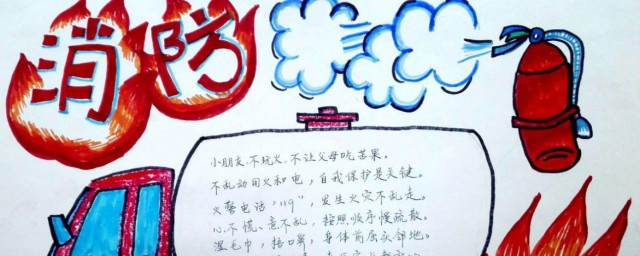 消防
小朋友.不玩火.不让父母吃苦果。
不乱动用火和电，自我保护是关键。
火警电话"119"，发生火灾不乱走。
心不慌、意不乱，按照顺序慢疏散。
湿毛巾，捂口鼻，身体前屈头邻地。